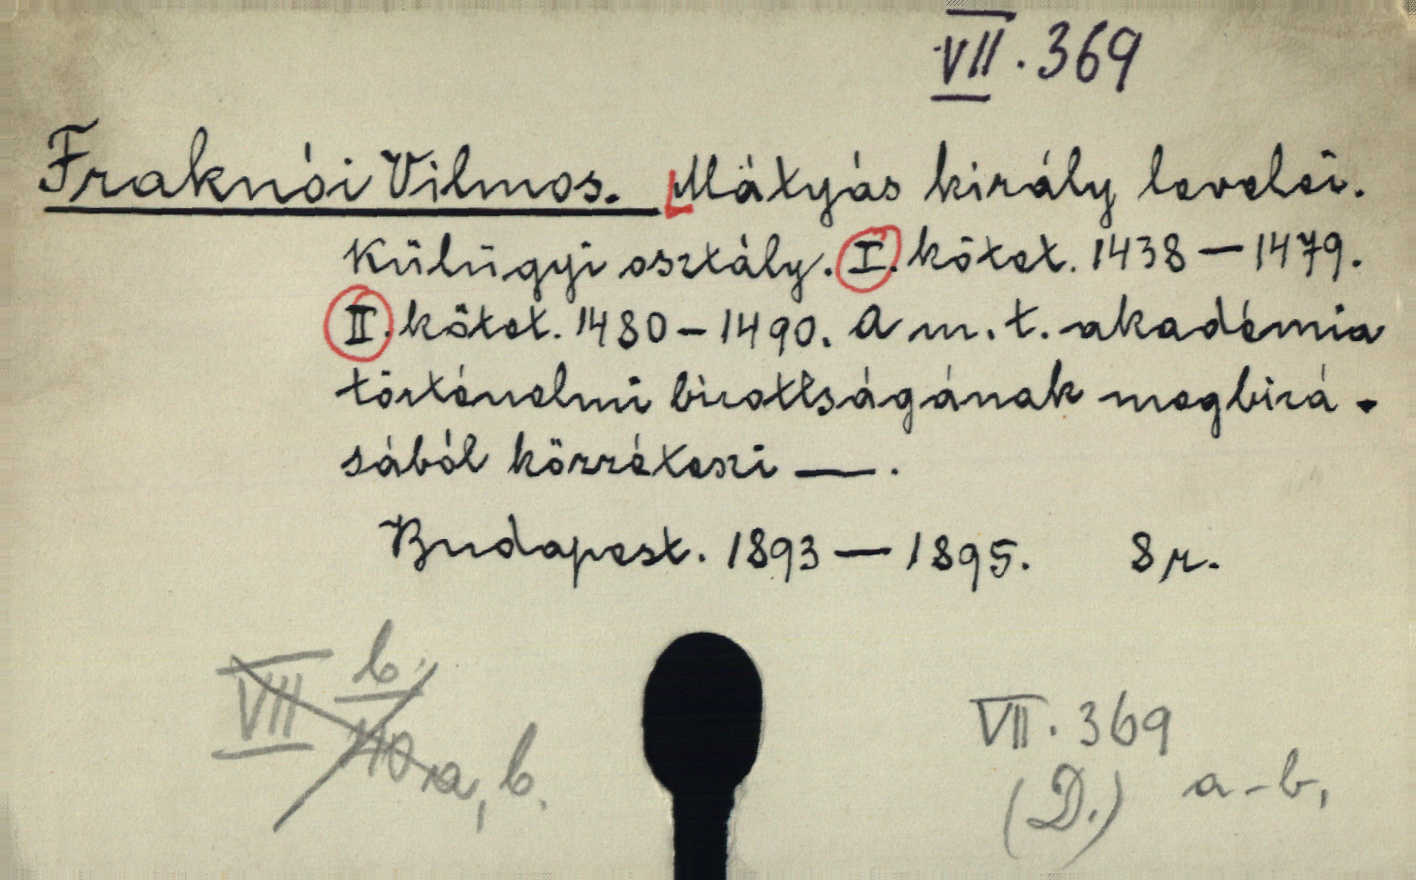 VII. 369
Fraknói Vilmos. Mátyás király levelei.
Külügyi osztály. I. kötet. 1438 — 1479.
II. kötet. 1480 – 1490. A m. t. akadémia
történelmi bizottságának megbizá-
sából közzéteszi —.
Budapest. 1893 — 1895. 8 r.
VIII b. / 40 a, b.
VII. 369
(D.) a-b,